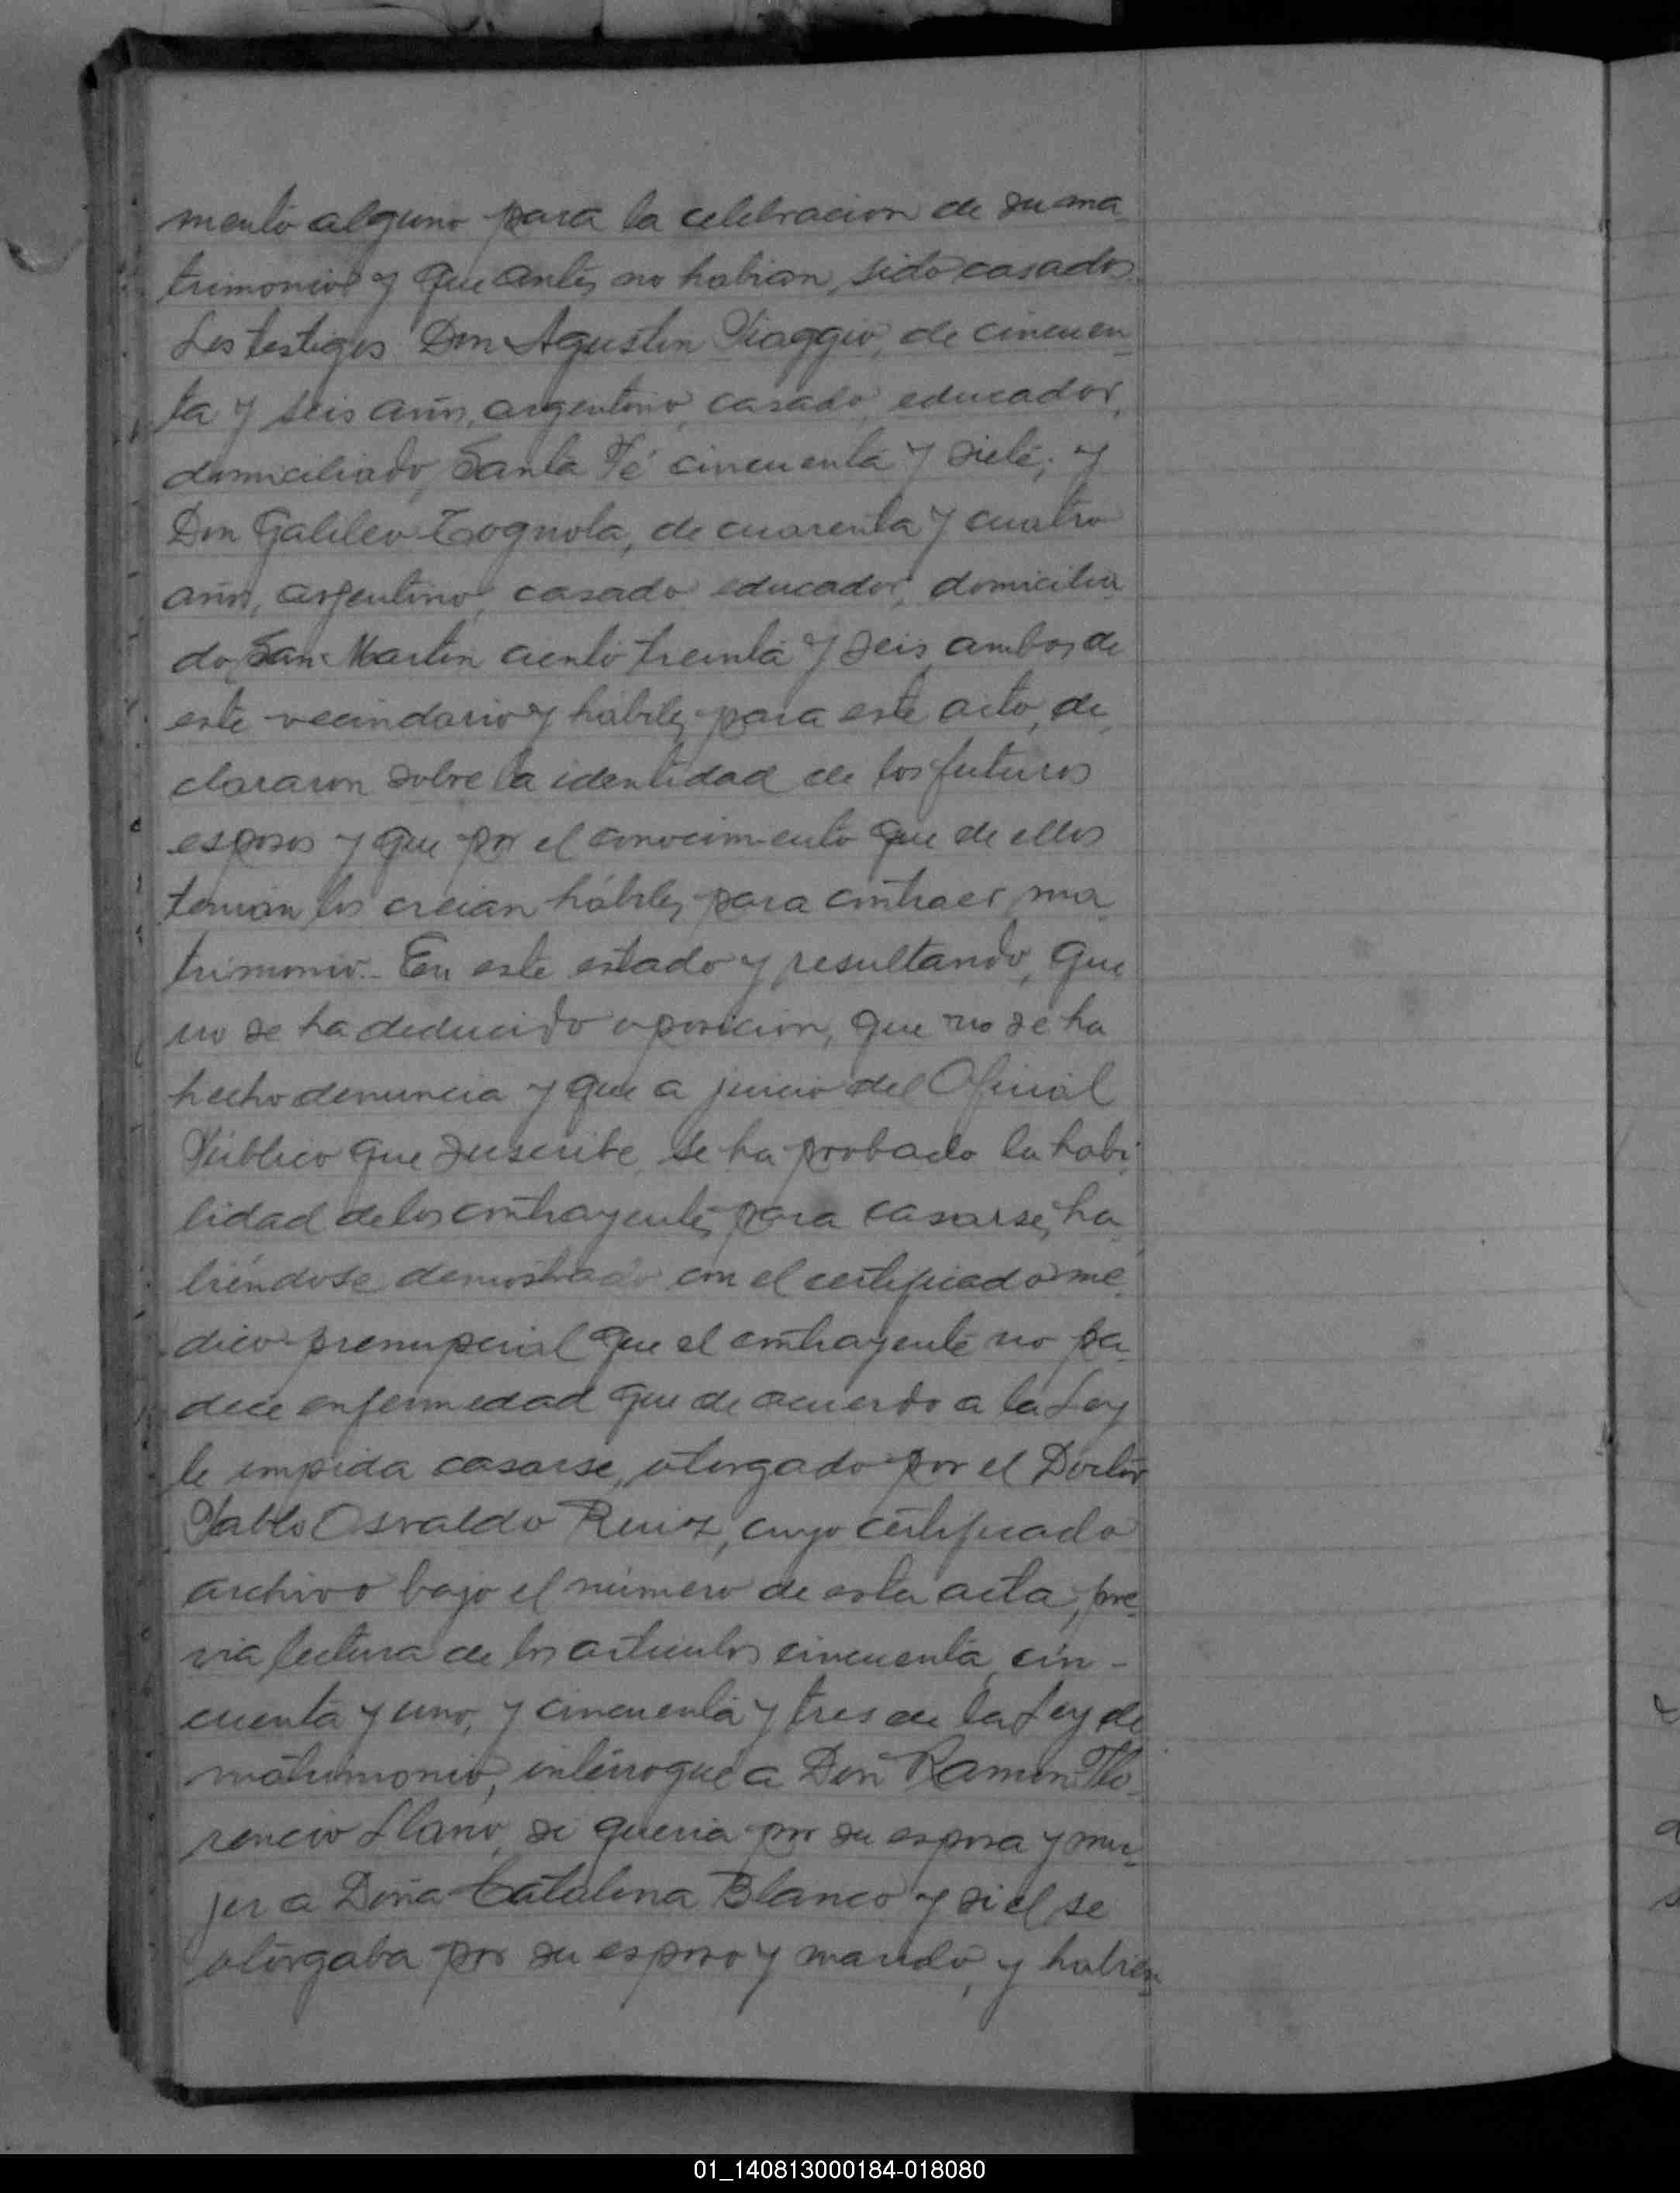 mento alguno para la celebracion de su ma-
trimonio y que antes no habian sido casados.
Los testigos Don Agustin Viaggio, de cincuen-
ta y seis años, argentino, casado, educador,
domiciliado, Santa Fé cincuenta y siete; y
Don Galileo Cognola, de cuarenta y cuatro
años, argentino, casado, educador, domicilia
do, San Martin ciento treinta y seis, ambos de
este vecindario y hábiles para este acto, de-
clararon sobre la identidad de los futuros
esposos y que por el conocimiento que de ellos
tenian los creian hábiles para contraer ma-
trimonio.- En este estado y resultando, que
no se ha deducido oposicion, que no se ha
hecho denuncia y que a juicio del Oficial
Público que suscribe se ha probado la habi-
lidad de los contrayentes para casarse, ha-
biéndose demostrado con el certificado mé-
dico prenupcial que el contrayente no pa-
dece enfermedad que de acuerdo a la Ley
le impida casarse, otorgado por el Doctor
Pablo Osvaldo Ruiz, cuyo certificado
archivo bajo el número de esta acta, pre-
via lectura de los articulos cincuenta, cin-
cuenta y uno, y cincuenta y tres de la Ley de
matrimonio, interrogué a Don Ramon Flo-
rencio Llano, si queria por su esposa y mu-
jer a Doña Catalina Blanco y si el se
otorgaba por su esposo y marido, y habien-
01_140813000184-018080